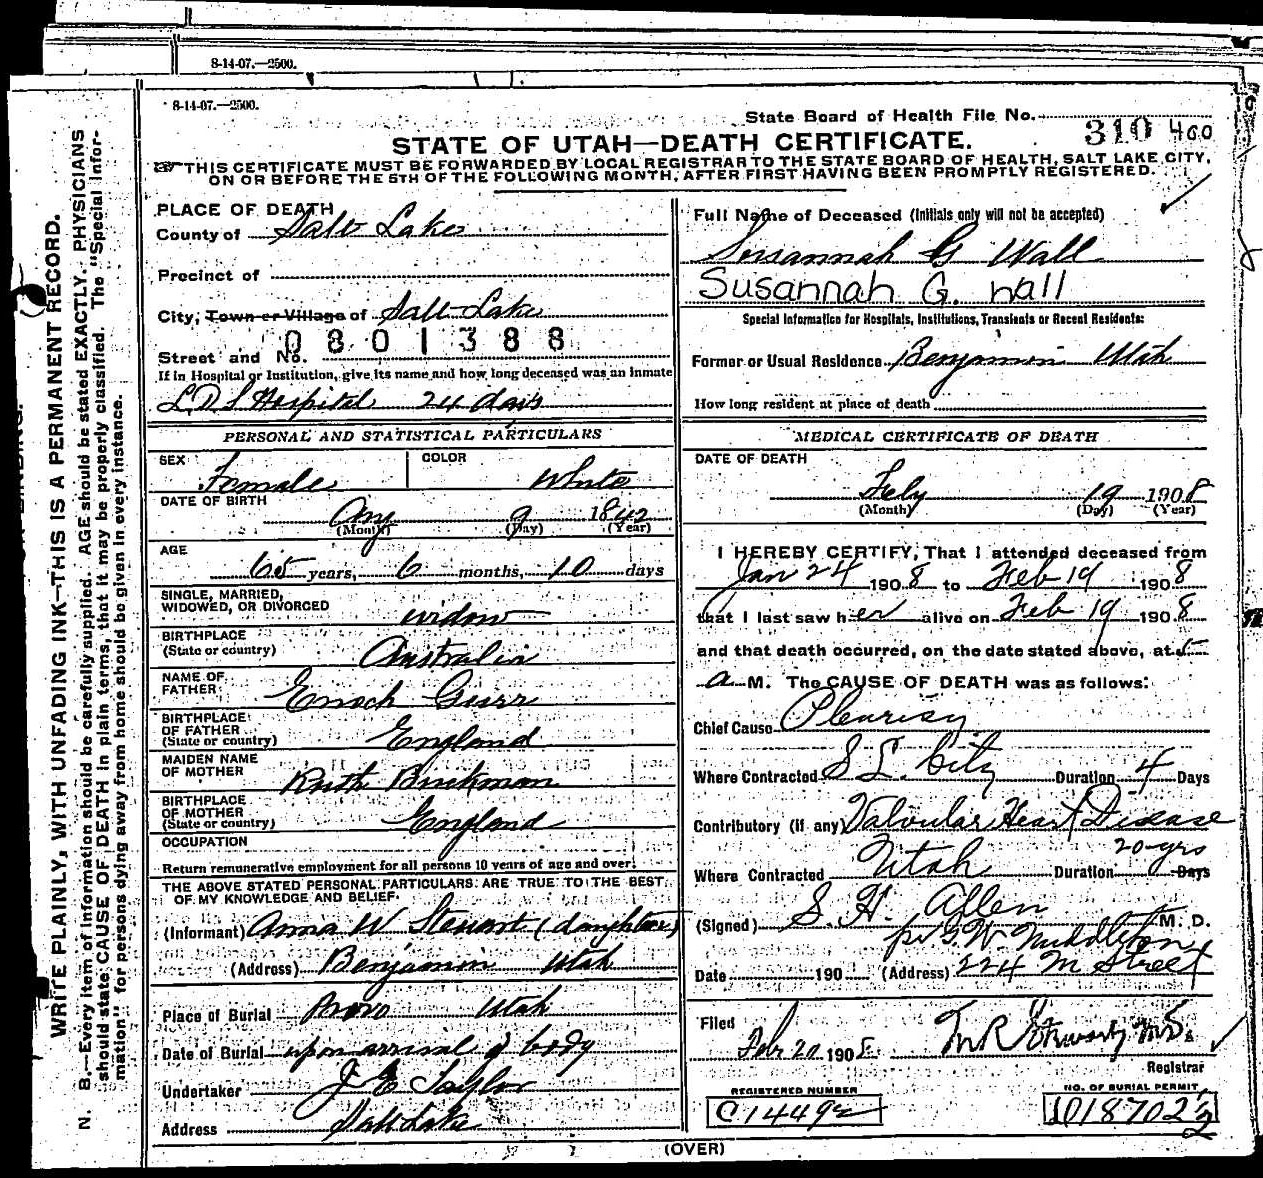 8-14-07.—2500.
8-14-07.—2500.
State Board of Health File No. 310 400
STATE OF UTAH—DEATH CERTIFICATE.
THIS CERTIFICATE MUST BE FORWARDED BY LOCAL REGISTRAR TO THE STATE BOARD OF HEALTH, SALT LAKE CITY,
ON OR BEFORE THE 5TH OF THE FOLLOWING MONTH, AFTER FIRST HAVING BEEN PROMPTLY REGISTERED.
WRITE PLAINLY, WITH UNFADING INK—THIS IS A PERMANENT RECORD.
N. B.—Every item of information should be carefully supplied. AGE should be stated EXACTLY. PHYSICIANS
should state CAUSE OF DEATH in plain terms, that it may be properly classified. The "Special Infor-
mation" for persons dying away from home should be given in every instance.
PLACE OF DEATH
County of Salt Lake
Precinct of
City, Town or Village of Salt Lake
0801388
Street and No.
If in Hospital or Institution, give its name and how long deceased was an inmate
L.D.S Hospital 24 days
PERSONAL AND STATISTICAL PARTICULARS
SEX Female COLOR White
DATE OF BIRTH Aug 9 1842
(Month) (Day) (Year)
AGE
65 years, 6 months, 10 days
SINGLE, MARRIED,
WIDOWED, OR DIVORCED widow
BIRTHPLACE
(State or country) Australia
NAME OF
FATHER Enoch Gurr
BIRTHPLACE
OF FATHER
(State or country) England
MAIDEN NAME
OF MOTHER Ruth Buckman
BIRTHPLACE
OF MOTHER
(State or country) England
OCCUPATION
Return remunerative employment for all persons 10 years of age and over.
THE ABOVE STATED PERSONAL PARTICULARS ARE TRUE TO THE BEST
OF MY KNOWLEDGE AND BELIEF.
(Informant) Anna W Stewart (daughter)
(Address) Benjamin Utah
Place of Burial Provo Utah
Date of Burial upon arrival of body
Undertaker J E Taylor
Address Salt Lake
Full Name of Deceased (Initials only will not be accepted)
Susannah G Wall
Susannah G. Wall
Special Information for Hospitals, Institutions, Transients or Recent Residents:
Former or Usual Residence Benjamin Utah
How long resident at place of death
MEDICAL CERTIFICATE OF DEATH
DATE OF DEATH
Feby 19 1908
(Month) (Day) (Year)
I HEREBY CERTIFY, That I attended deceased from
Jan 24 1908 to Feb 19 1908
that I last saw her alive on Feb 19 1908
and that death occurred, on the date stated above, at 5
a M. The CAUSE OF DEATH was as follows:
Chief Cause Pleurisy
Where Contracted S L. City Duration 4 Days
Contributory (if any) Valvular Heart Disease
20 yrs
Where Contracted Utah Duration Days
(Signed) S. H. Allen M. D.
pr G. W. Middleton
Date 190 (Address) 224 M Street
Filed
Feb 20 1908
Registrar
REGISTERED NUMBER
C 14492
NO. OF BURIAL PERMIT
(OVER)